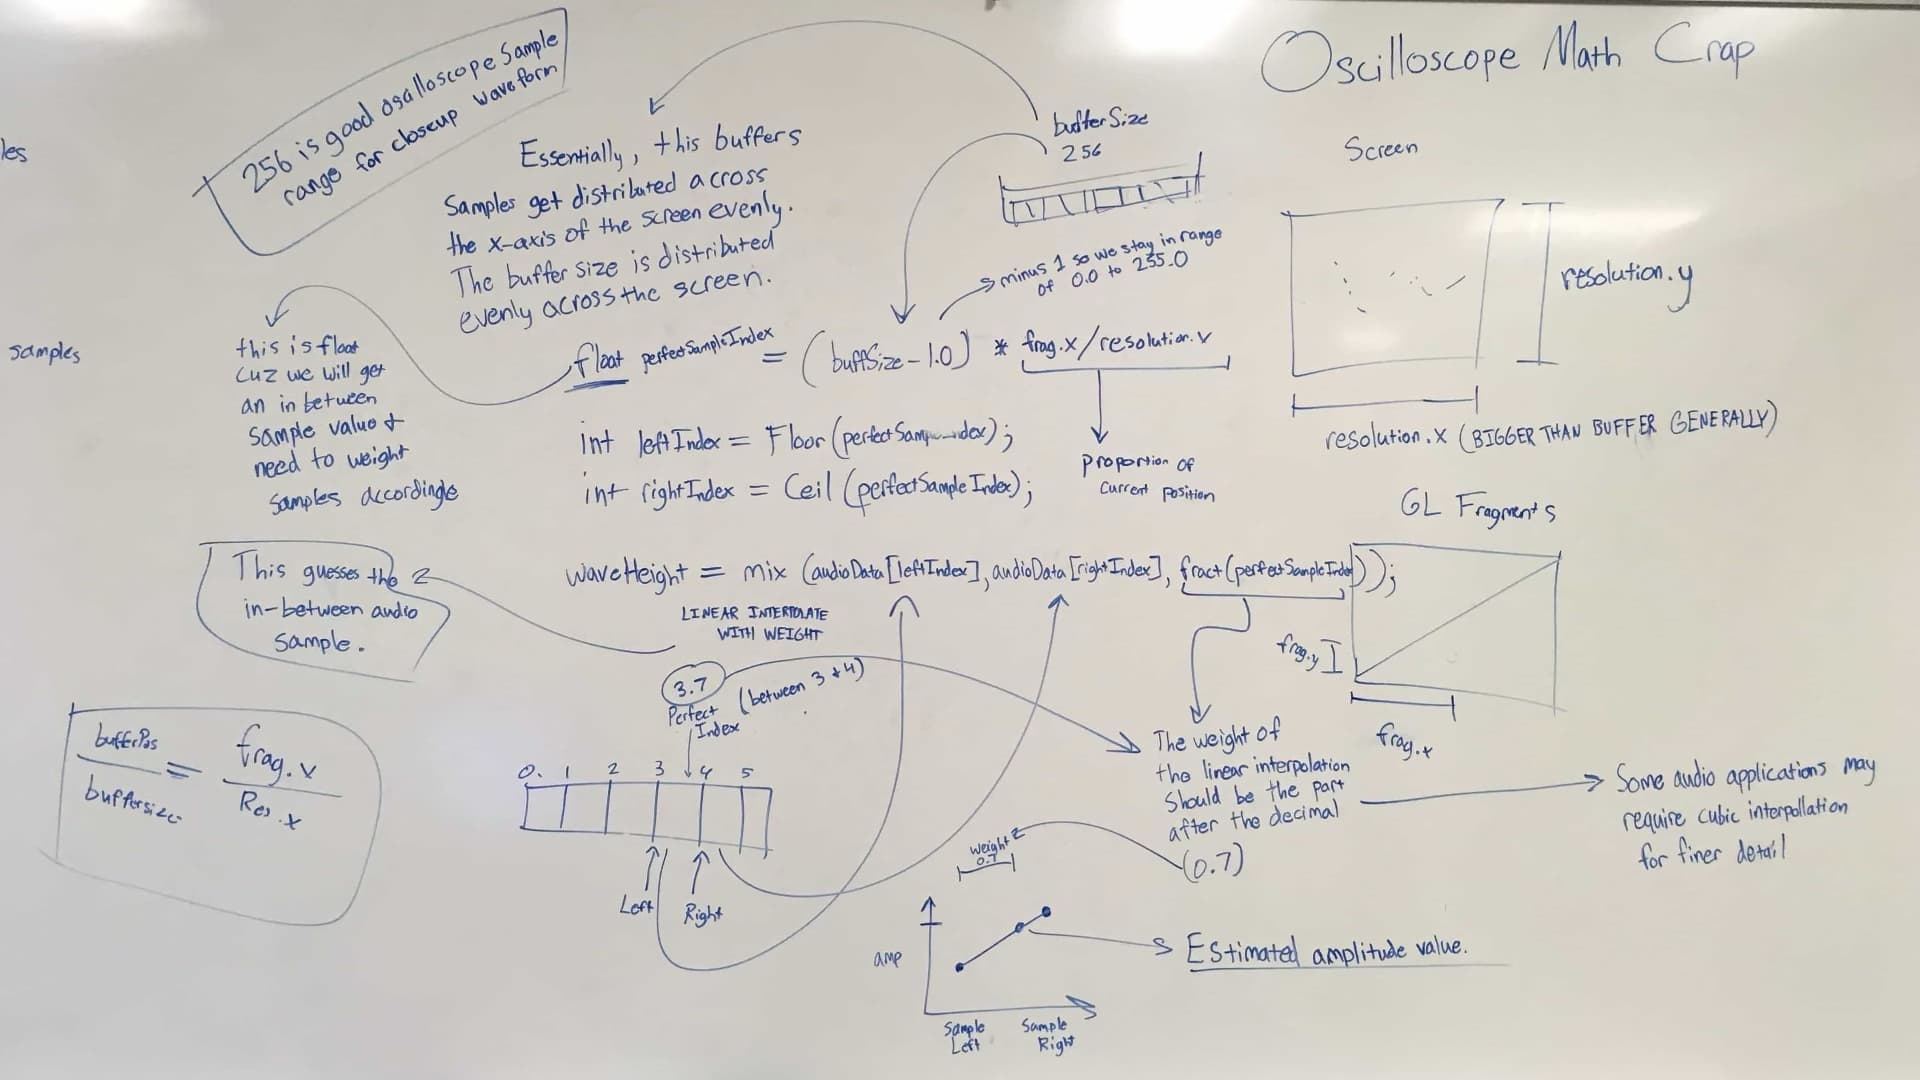 Oscilloscope Math Crap
256 is good osalloscope Sample
range for closeup waveform
les
samples
Essentially, this buffers
Samples get distributed across
the x-axis of the screen evenly.
The buffer size is distributed
evenly across the screen.
bufferSize
256
minus 1 so we stay in range
of 0.0 to 255.0
Screen
resolution.y
resolution.x (BIGGER THAN BUFFER GENERALLY)
this is float
cuz we will get
an in between
sample value &
need to weight
samples accordingle
float perfectSampleIndex = (buffSize - 1.0) * frag.x/resolution.x
Proportion of
Current position
int leftIndex = Floor(perfectSamp dex);
int rightIndex = Ceil (perfectSampleIndex);
GL Fragments
frag.y
frag.x
This guesses the
in-between audio
Sample.
waveHeight = mix (audioData[leftIndex], audioData[rightIndex], fract(perfectSampleIndex));
LINEAR INTERPOLATE
WITH WEIGHT
3.7 (between 3 & 4)
Perfect
Index
0. 1 2 3 4 5
Left Right
bufferPos = frag.x
buffersize Res.x
The weight of
the linear interpolation
Should be the part
after the decimal
(0.7)
Some audio applications may
require cubic interpollation
for finer detail
Weight
0.7
amp
Estimated amplitude value.
Sample Sample
Left Right